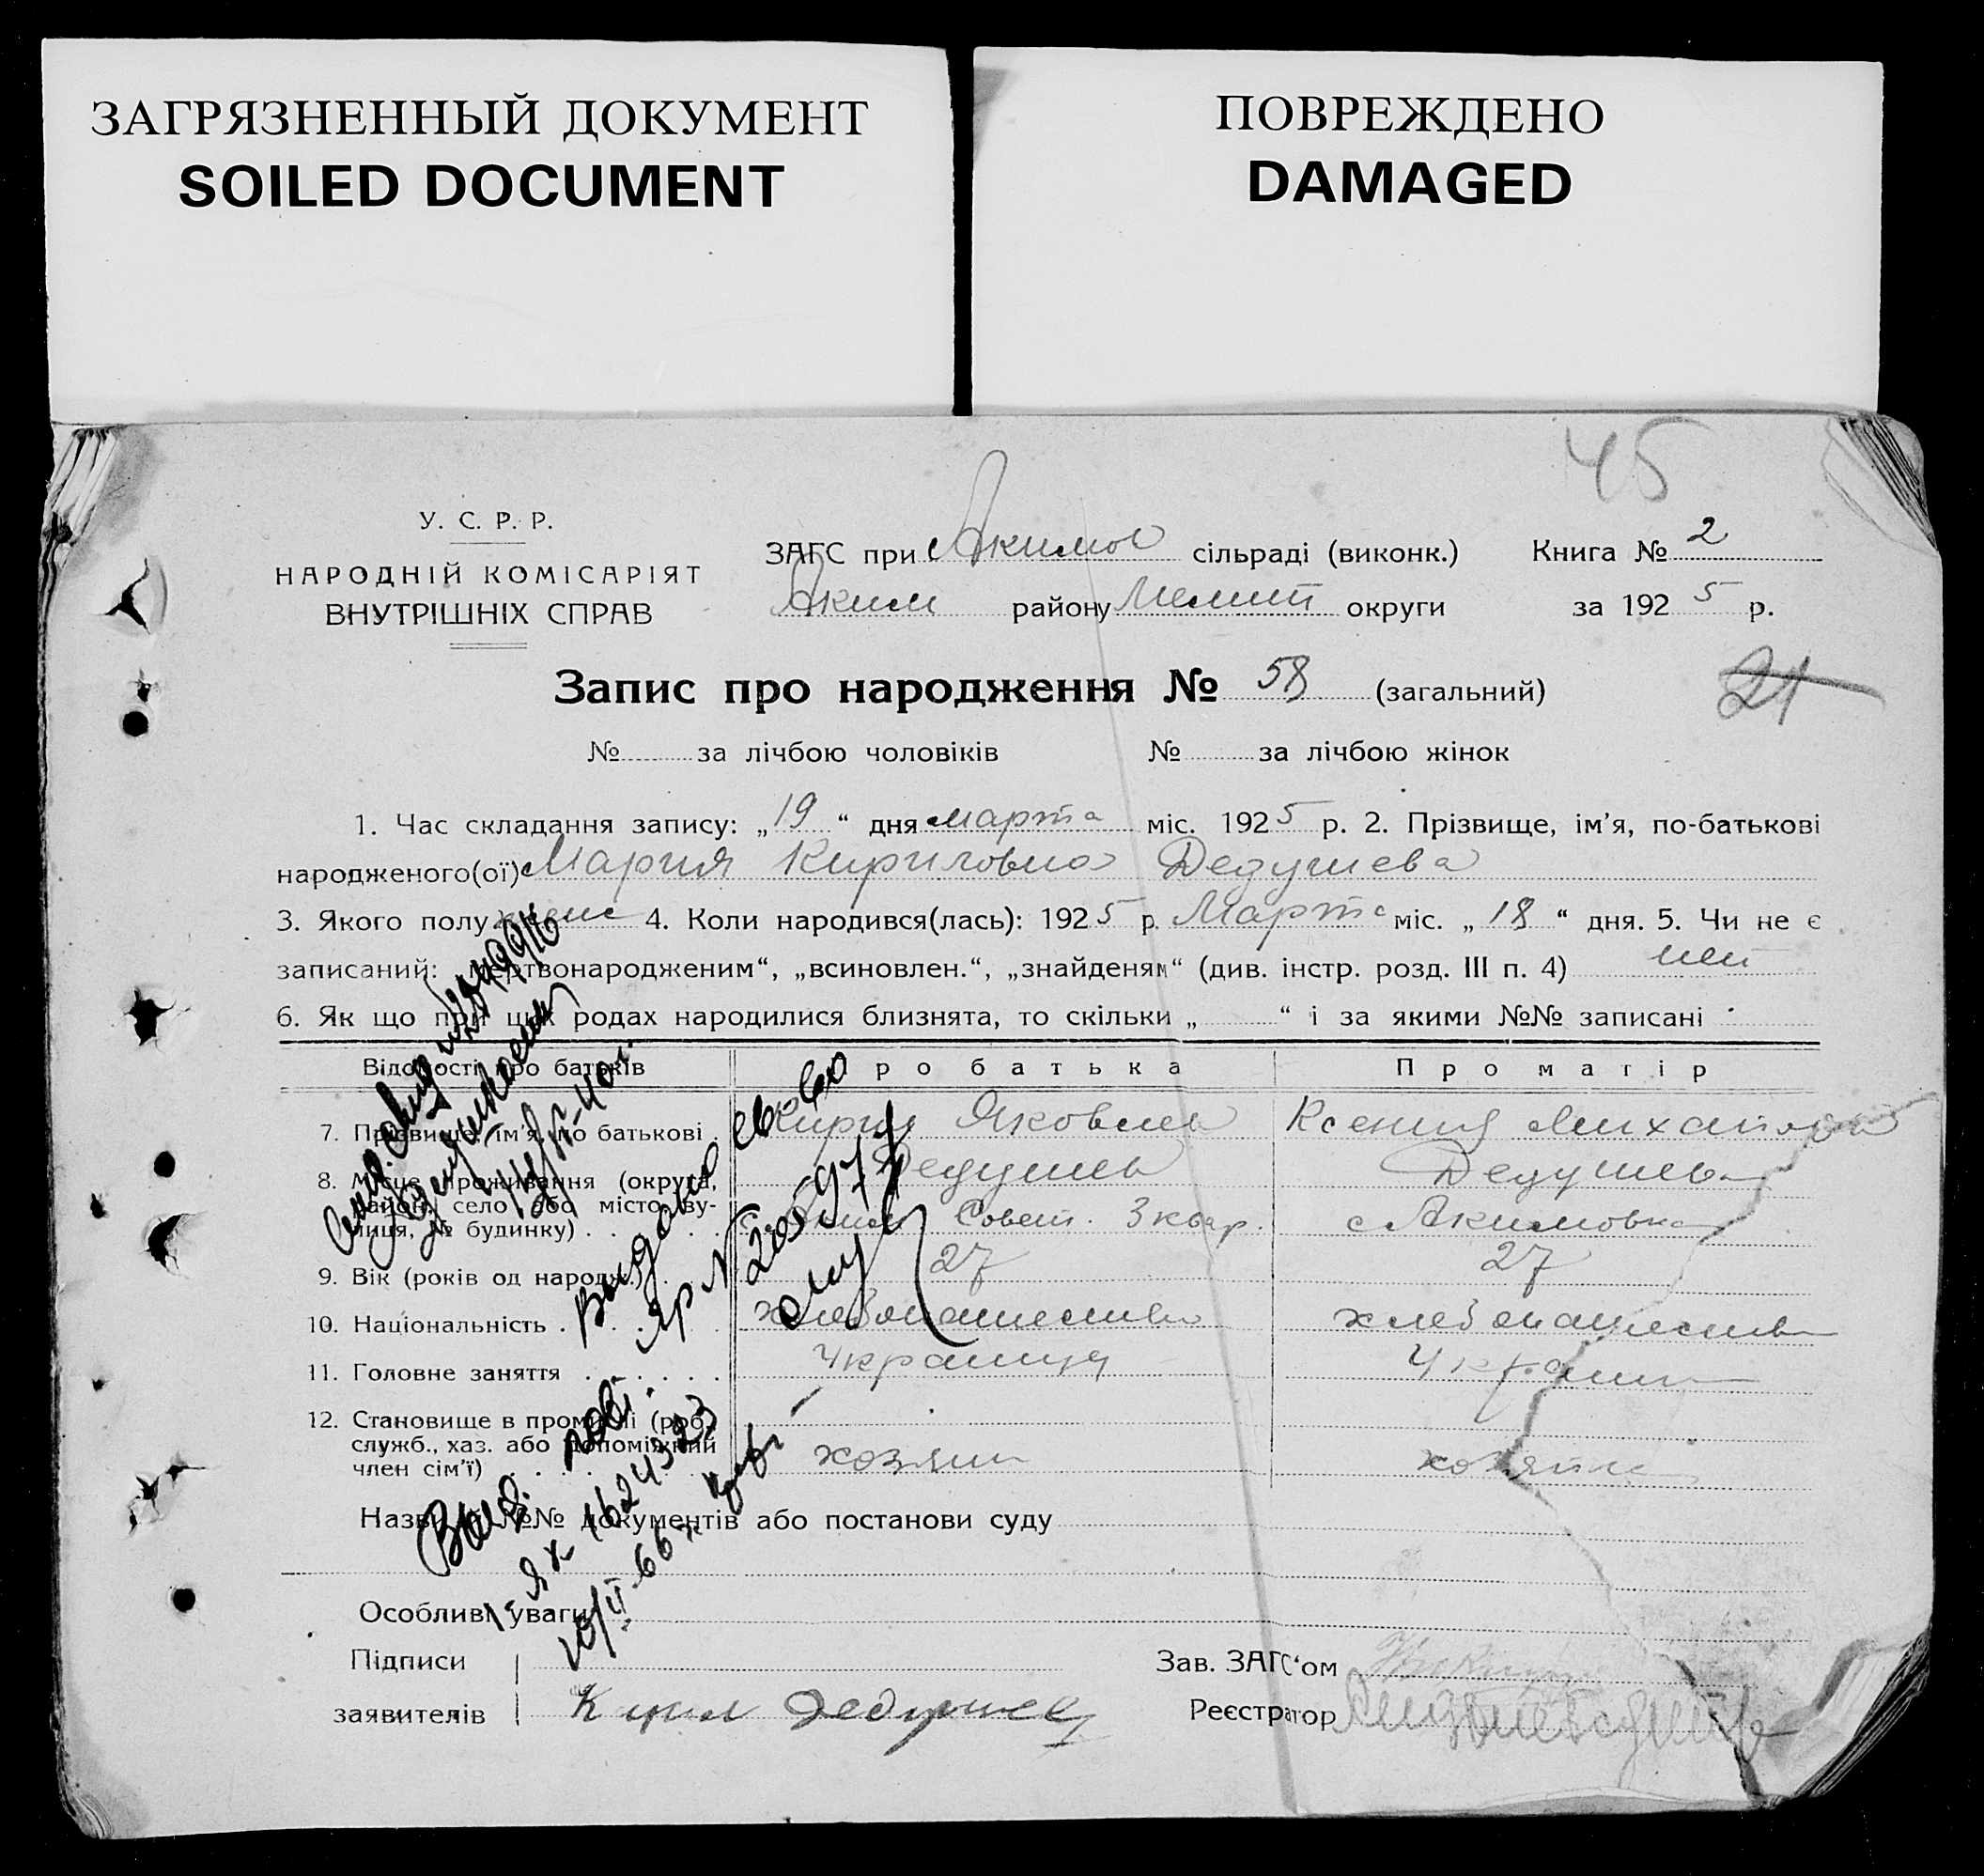 ЗАГРЯЗНЕННЫЙ ДОКУМЕНТ
SOILED DOCUMENT
ПОВРЕЖДЕНО
DAMAGED
45
У. С. Р. Р.
НАРОДНІЙ КОМІСАРІЯТ
ВНУТРІШНІХ СПРАВ
ЗАГС при Акимов сільраді (виконк.) Книга № 2
Аким району Мелит округи за 1925 р.
Запис про народження № 58 (загальний) 21
№ за лічбою чоловіків № за лічбою жінок
1. Час складання запису: „19“ дня марта міс. 1925 р. 2. Прізвище, ім'я, по-батькові
народженого(ої) Мария Кириловна Дедушева
3. Якого полу жене 4. Коли народився(лась): 1925 р. Марта міс. „18“ дня. 5. Чи не є
записаний: „мертвонародженим“, „всиновлен.“, „знайденям“ (див. інстр. розд. III п. 4) нет
6. Як що при цих родах народилися близнята, то скільки „ “ і за якими №№ записані
Відомості про батьків Про батька Про матір
7. Прізвище, ім'я, по батькові Кирил Яковлев Ксения Михайлов
Дедушев Дедушева
8. Місце проживання (округа,
район, село або місто, ву-
лиця, № будинку) Совет. 3 квар. с Акимовка
9. Вік (років од народж.) 27 27
10. Національність хлебопашество хлебопашество
11. Головне заняття Украинц Украин
12. Становище в промислі (роб.,
служб., хаз. або допоміжний
член сім'ї) хозяин хозяйка
Назви й №№ документів або постанови суду
Особливі уваги
Підписи
заявителів Кирил Дедушев
Зав. ЗАГС'ом
Реєстратор
Выдано
ЯР № 205977
Выд. повт.
1624323
10/II-66 г.